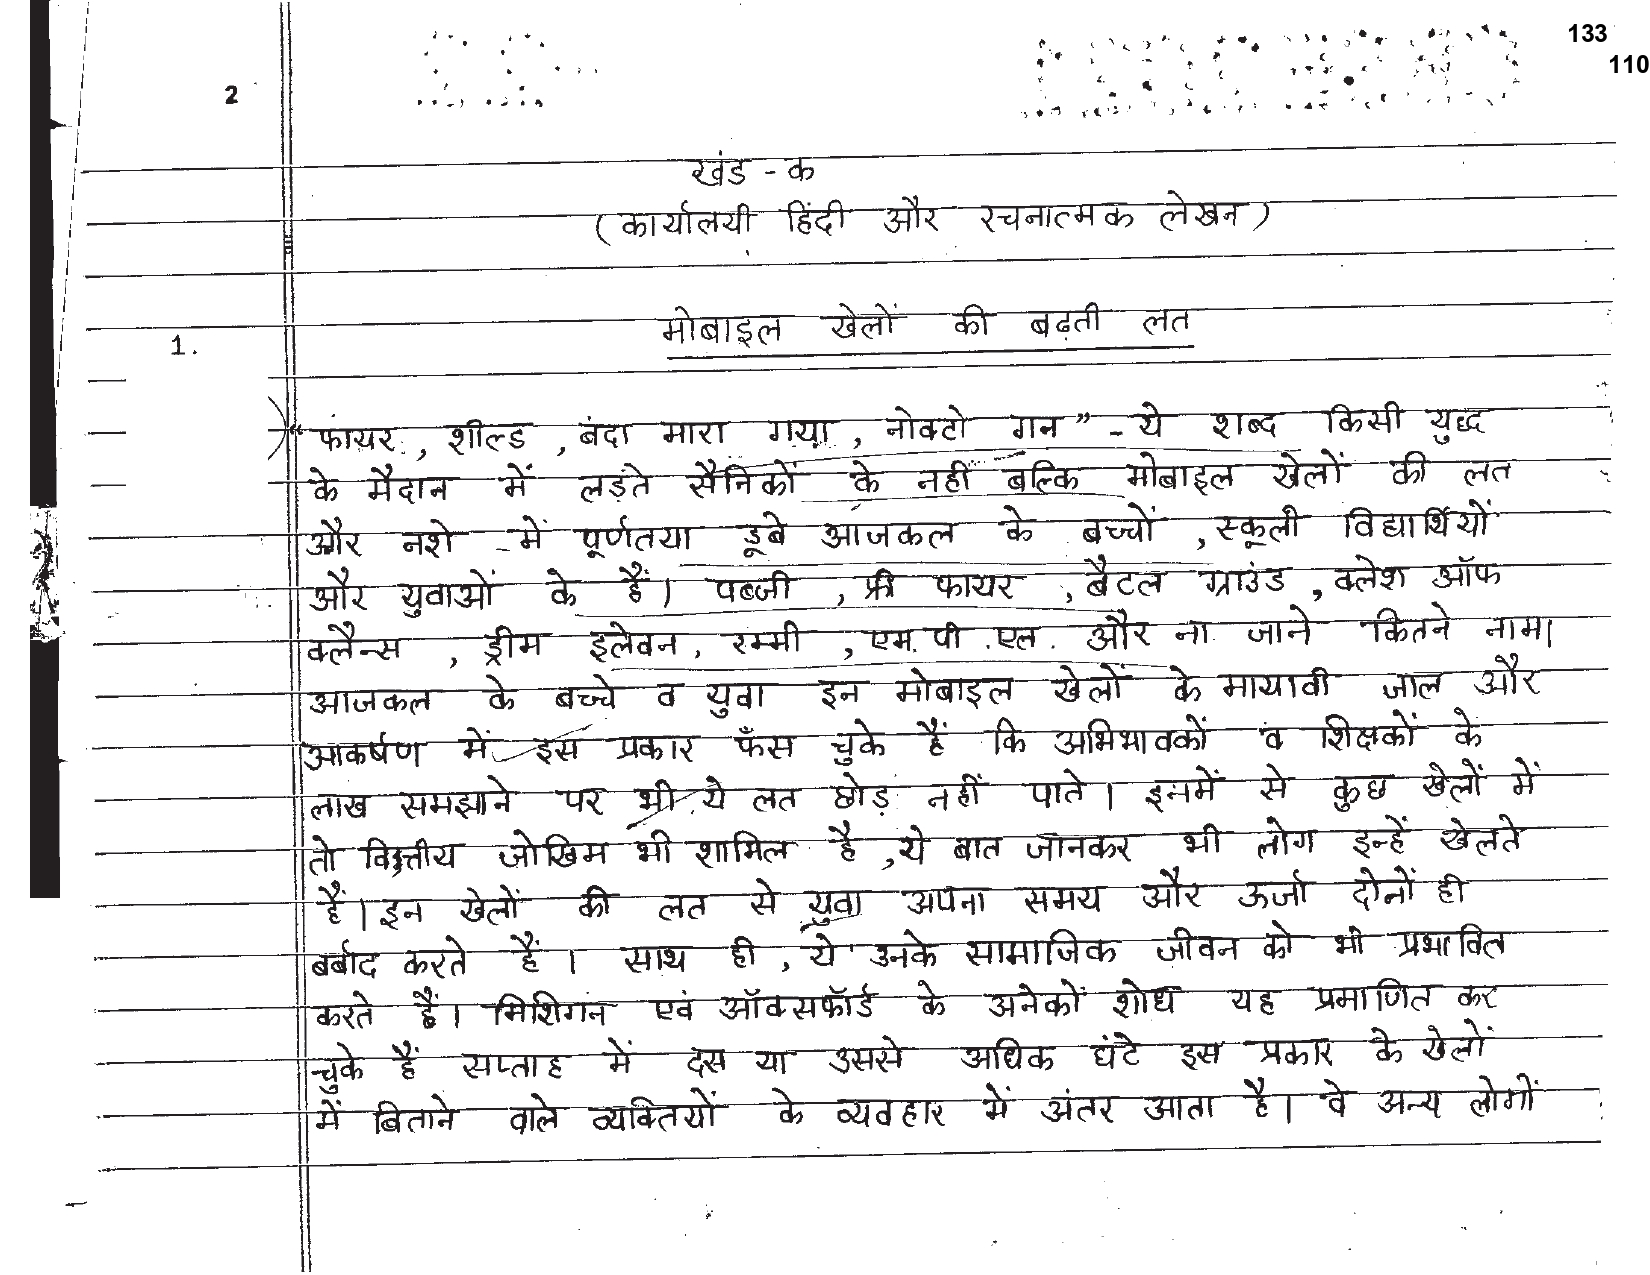 133
110
2
खंड - क
(कार्यालयी हिंदी और रचनात्मक लेखन)
1. मोबाइल खेलों की बढ़ती लत
"फायर, शील्ड, बंदा मारा गया, नोक्टो गन" - ये शब्द किसी युद्ध
के मैदान में लड़ते सैनिकों के नहीं बल्कि मोबाइल खेलों की लत
और नशे में पूर्णतया डूबे आजकल के बच्चों, स्कूली विद्यार्थियों
और युवाओं के हैं। पब्जी, फ्री फायर, बैटल ग्राउंड, क्लेश ऑफ
क्लैन्स, ड्रीम इलेवन, रम्मी, एम.पी.एल. और ना जाने कितने नाम।
आजकल के बच्चे व युवा इन मोबाइल खेलों के मायावी जाल और
आकर्षण में इस प्रकार फँस चुके हैं कि अभिभावकों व शिक्षकों के
लाख समझाने पर भी ये लत छोड़ नहीं पाते। इनमें से कुछ खेलों में
तो वित्तीय जोखिम भी शामिल है, ये बात जानकर भी लोग इन्हें खेलते
हैं। इन खेलों की लत से युवा अपना समय और ऊर्जा दोनों ही
बर्बाद करते हैं। साथ ही, ये उनके सामाजिक जीवन को भी प्रभावित
करते हैं। मिशिगन एवं ऑक्सफॉर्ड के अनेकों शोध यह प्रमाणित कर
चुके हैं सप्ताह में दस या उससे अधिक घंटे इस प्रकार के खेलों
में बिताने वाले व्यक्तियों के व्यवहार में अंतर आता है। वे अन्य लोगों